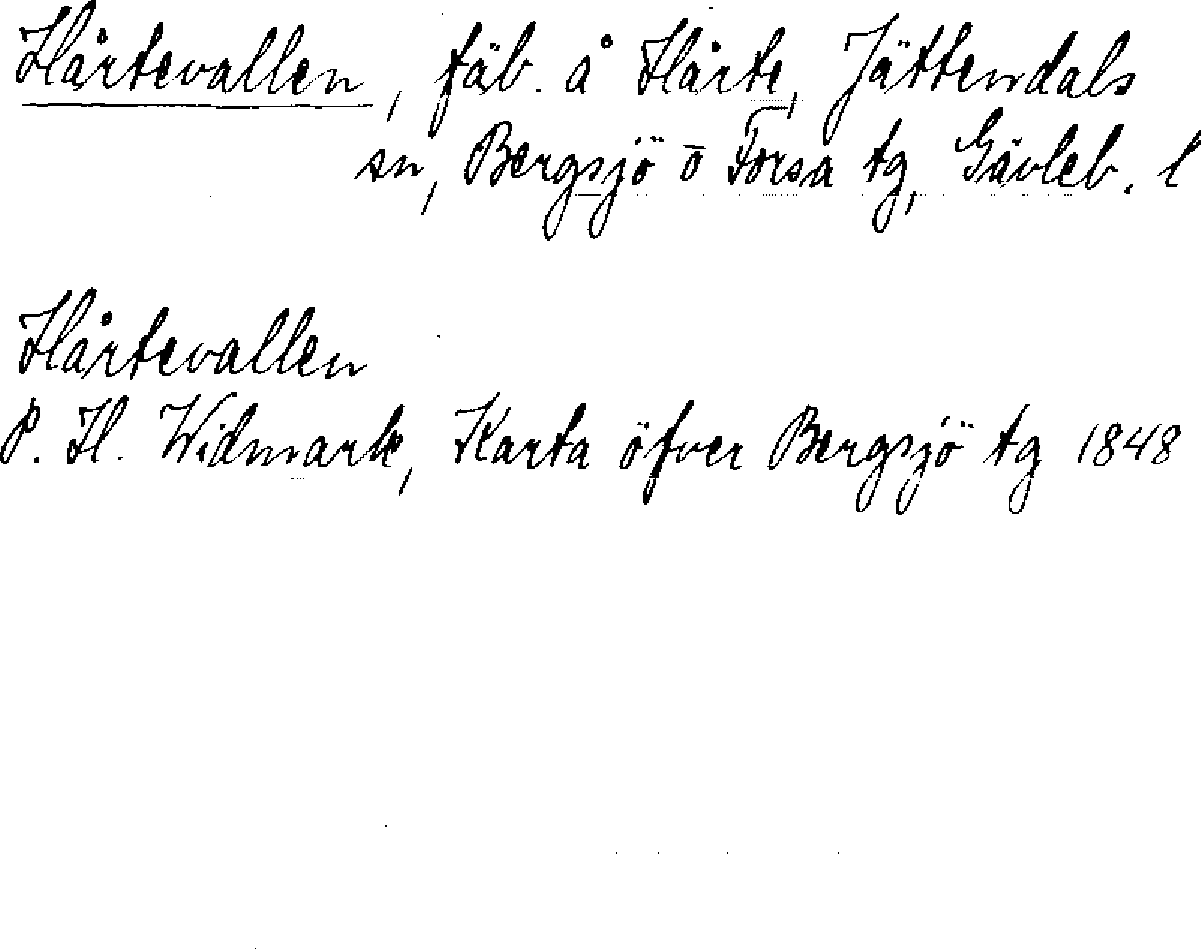 Hårtevallen, fäb. å Hårte, Jättendals
sn, Bergsjö o Forsa tg, Gävleb. l
Hårtevallen
P. H. Widmark, Karta öfver Bergsjö tg 1848